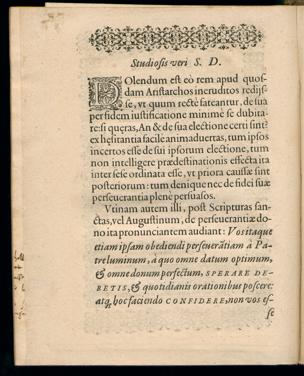 Studiosis veri S. D.
Dolendum est eò rem apud quos-
dam Aristarchos ineruditos redijs-
se, vt quum rectè fateantur, de sua
per fidem iustificatione minimè se dubita-
re: si quęras, An & de sua electione certi sint?
ex hęsitantia facilè animaduertas, tum ipsos
incertos esse de sui ipsorum electione, tum
non intelligere prædestinationis effecta ita
inter sese ordinata esse, vt priora caussæ sint
posteriorum: tum denique nec de fidei suæ
perseuerantia plenè persuasos.
Vtinam autem illi, post Scripturas san-
ctas, vel Augustinum, de perseuerantiæ do-
no ita pronunciantem audiant: Vos itaque
etiam ipsam obediendi perseuerātiam à Pa-
tre luminum, à quo omne datum optimum,
& omne donum perfectum, SPERARE DE-
BETIS, & quotidianis orationibus poscere:
atq, hoc faciendo CONFIDERE, non vos es-
se